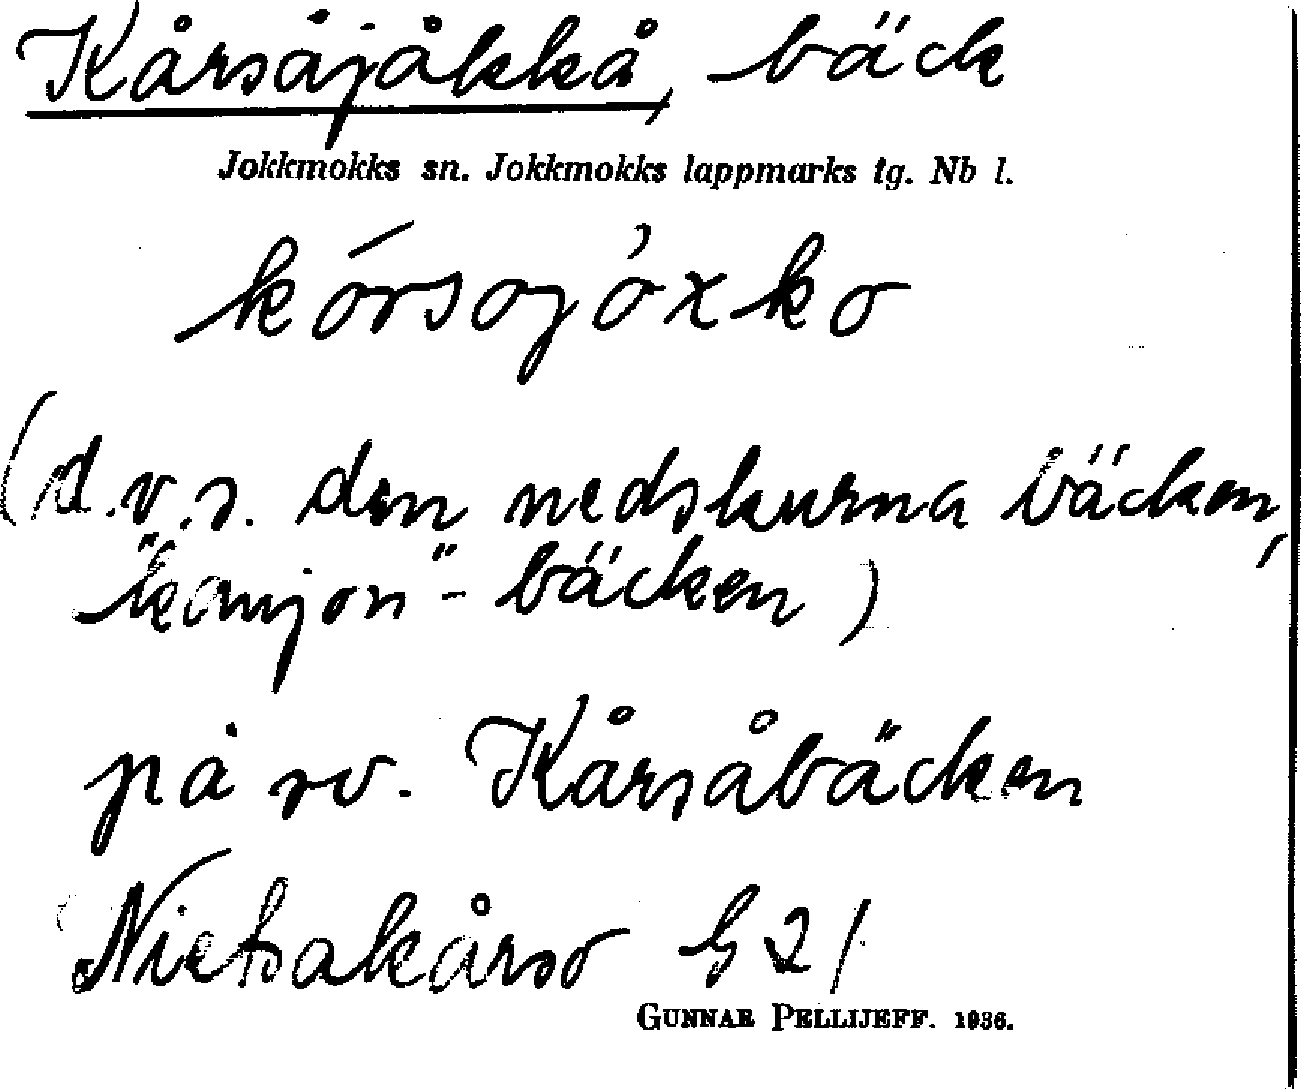 Kårsåjåkkå, bäck
Jokkmokks sn. Jokkmokks lappmarks tg. Nb l.
kórsojóxko
(d.v.s. den nedskurna bäcken,
"kanjon"-bäcken)
på sv. Kårsåbäcken
Nietsakårso G 21
GUNNAR PELLIJEFF. 1936.